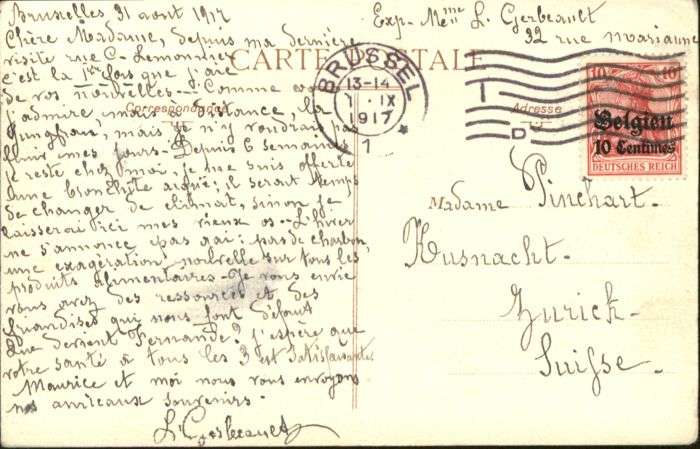 Bruxelles 31 août 1917
Exp- Mme L. Gerbeault
32 rue marianne
Chère Madame, depuis ma dernière
visite rue C- Lemonnier
c'est la 1re fois que j'aie
de vos nouvelles- Comme
j'admire mais à distance, la
Jungfrau, mais je n'y voudrai pas
finir mes jours- Depuis 6 semaines
je reste chez moi, je me suis offerte
une bronchite aigüe; il serait temps
de changer de climat, sinon je
laisserai ici mes vieux os-. L'hiver
ne s'annonce pas gai: pas de charbon,
une exagération nouvelle sur tous les
produits alimentaires- Je vous envie
vous avez des ressources et des
friandises qui nous font défaut
Que devient Fernande? J'espère que
votre santé à tous les 3 est satisfaisante
Maurice et moi nous vous envoyons
nos amicaux souvenirs.
L Gerbeault
CARTE POSTALE
Correspondance
Adresse
BRÜSSEL
13-14
1 IX
1917
1
10 10
Belgien
10 Centimes
DEUTSCHES REICH
Madame Pinchart-
Kusnacht-
Zurich-
Suisse-